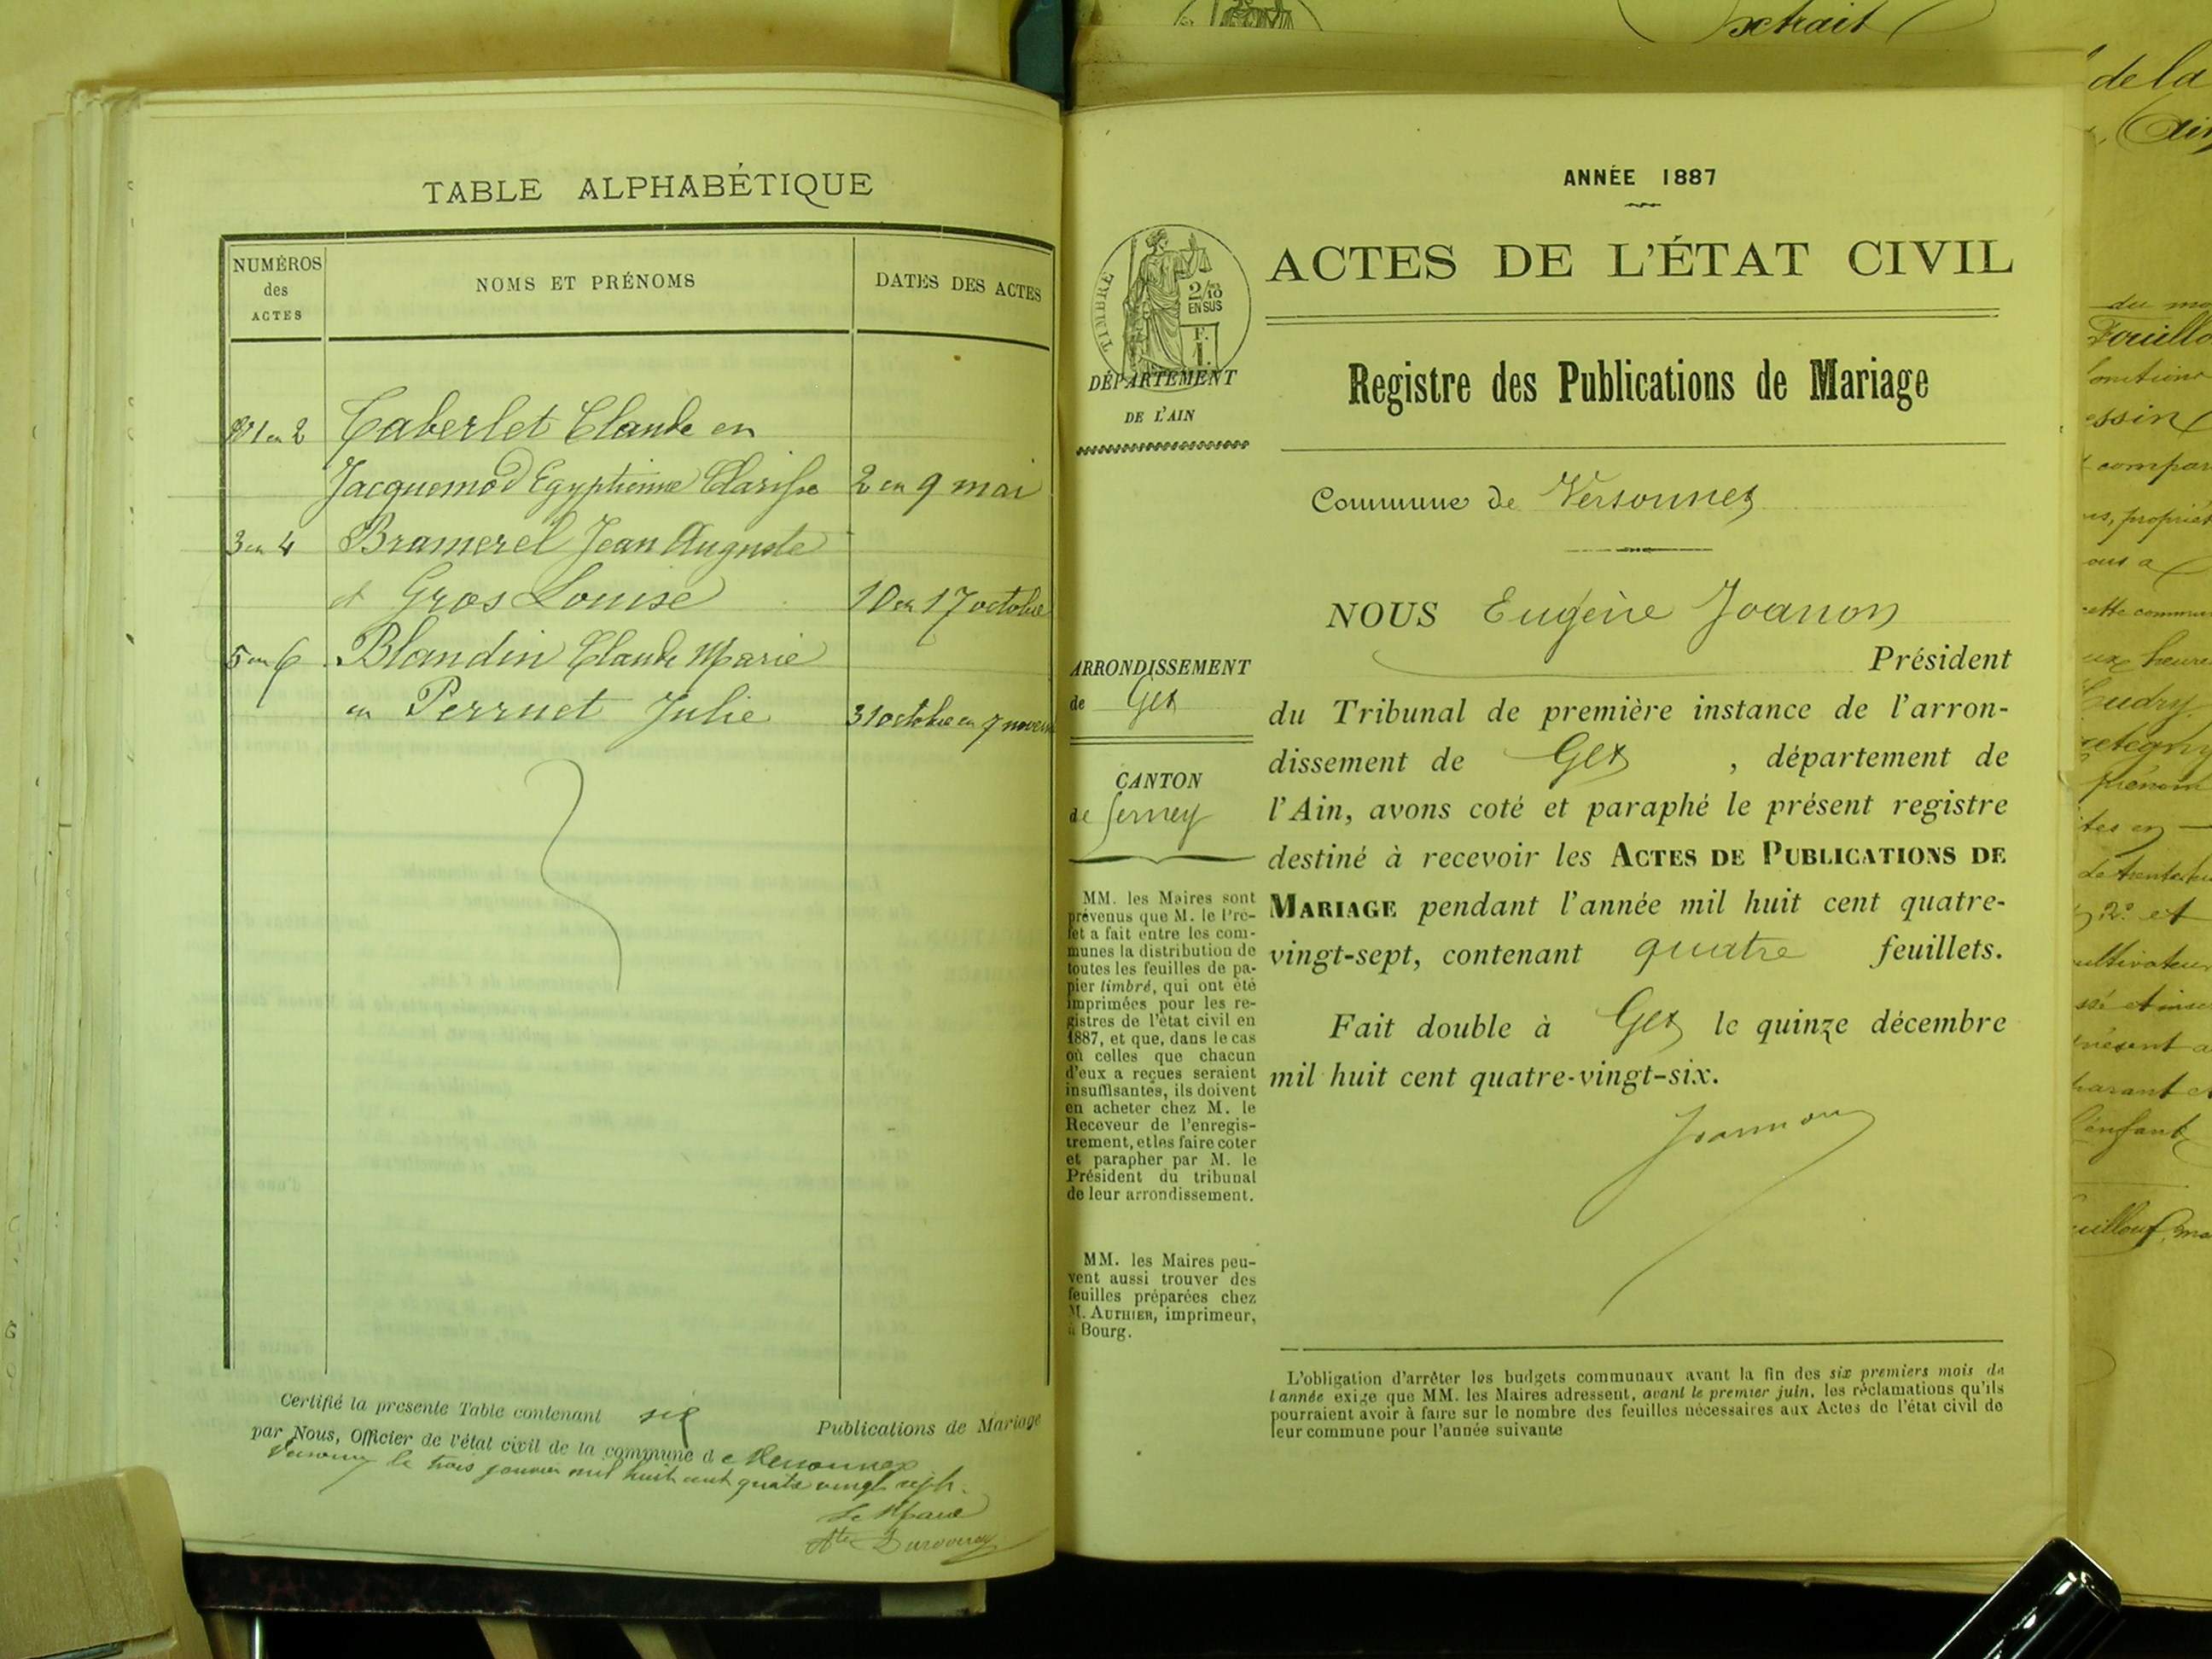 TABLE ALPHABÉTIQUE
NUMÉROS
des
ACTES
NOMS ET PRÉNOMS
DATES DES ACTES
Nº 1 et 2 Caberlet Claude et
Jacquemod Egyptienne Clarisse 2 et 9 mai
3 et 4 Bramerel Jean Auguste
et Gros Louise 10 et 17 octobre
5 et 6 Blandin Claude Marie
et Perruet Julie 31 octobre et 7 novem
Certifié la presente Table contenant six Publications de Mariage
par Nous, Officier de l'état civil de la commune de Versonnex
Versonnex le trois janvier mil huit cent quatre vingt sept.
Le Maire
Duroveray
ANNÉE 1887
TIMBRE
2/10
EN SUS
F.
1.
ACTES DE L'ÉTAT CIVIL
DÉPARTEMENT
DE L'AIN
Registre des Publications de Mariage
Commune de Versonnex
NOUS Eugène Joanon
Président
ARRONDISSEMENT
de Gex
du Tribunal de première instance de l'arron-
dissement de Gex, département de
CANTON
de Ferney
l'Ain, avons coté et paraphé le présent registre
destiné à recevoir les ACTES DE PUBLICATIONS DE
MARIAGE pendant l'année mil huit cent quatre-
vingt-sept, contenant quatre feuillets.
Fait double à Gex le quinze décembre
mil huit cent quatre-vingt-six.
Joannon
MM. les Maires sont
prévenus que M. le Pré-
fet a fait entre les com-
munes la distribution de
toutes les feuilles de pa-
pier timbré, qui ont été
imprimées pour les re-
gistres de l'état civil en
1887, et que, dans le cas
où celles que chacun
d'eux a reçues seraient
insuffisantes, ils doivent
en acheter chez M. le
Receveur de l'enregis-
trement, et les faire coter
et parapher par M. le
Président du tribunal
de leur arrondissement.
MM. les Maires peu-
vent aussi trouver des
feuilles préparées chez
M. AUTHIER, imprimeur,
à Bourg.
L'obligation d'arrêter les budgets communaux avant la fin des six premiers mois de
l'année exige que MM. les Maires adressent, avant le premier juin, les réclamations qu'ils
pourraient avoir à faire sur le nombre des feuilles nécessaires aux Actes de l'état civil de
leur commune pour l'année suivante
extrait
de la